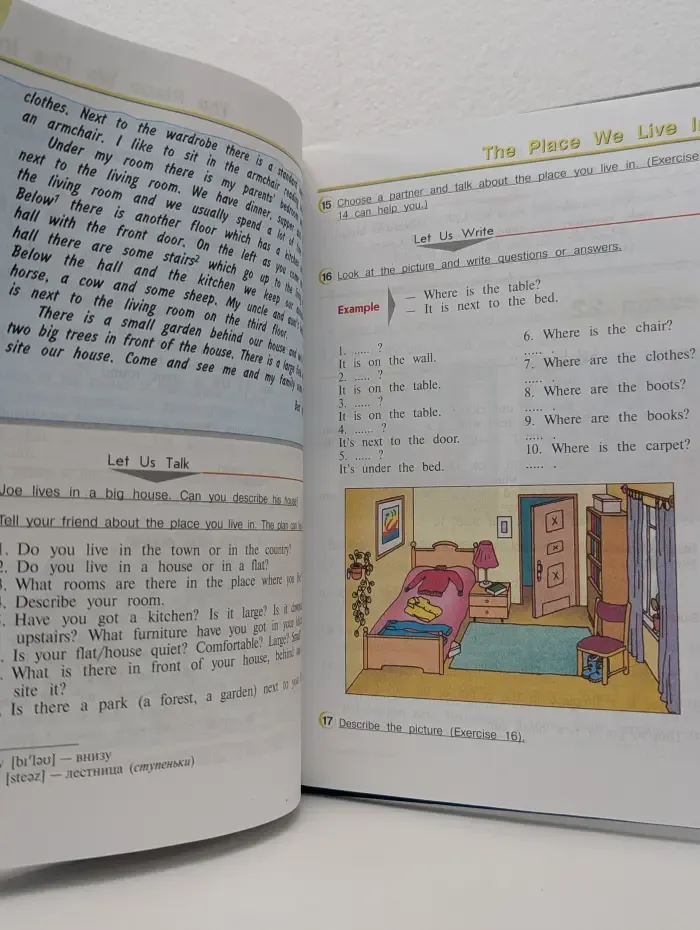 clothes. Next to the wardrobe there is a standard
an armchair. I like to sit in the armchair reading
Under my room there is my parents' bedroom
next to the living room. We have dinner, supper
the living room and we usually spend a lot of
Below⁷ there is another floor which has a kitchen
hall with the front door. On the left as you come
hall there are some stairs² which go up to the
Below the hall and the kitchen we keep our
horse, a cow and some sheep. My uncle and aunt's
is next to the living room on the third floor.
There is a small garden behind our house and
two big trees in front of the house. There is a large
site our house. Come and see me and my family
Let Us Talk
Joe lives in a big house. Can you describe his house?
Tell your friend about the place you live in. The plan can
1. Do you live in the town or in the country?
2. Do you live in a house or in a flat?
3. What rooms are there in the place where you
4. Describe your room.
Have you got a kitchen? Is it large? Is it
upstairs? What furniture have you got in your
Is your flat/house quiet? Comfortable? Large? Small?
What is there in front of your house, behind
site it?
Is there a park (a forest, a garden) next to
[bɪ'ləʊ] — внизу
[steəz] — лестница (ступеньки)
The Place We Live
15 Choose a partner and talk about the place you live in. (Exercise
14 can help you.)
Let Us Write
16 Look at the picture and write questions or answers.
Example
— Where is the table?
— It is next to the bed.
1. ..... ?
It is on the wall.
2. ..... ?
It is on the table.
3. ..... ?
It is on the table.
4. ..... ?
It's next to the door.
5. ..... ?
It's under the bed.
6. Where is the chair?
..... .
7. Where are the clothes?
..... .
8. Where are the boots?
..... .
9. Where are the books?
..... .
10. Where is the carpet?
..... .
17 Describe the picture (Exercise 16).